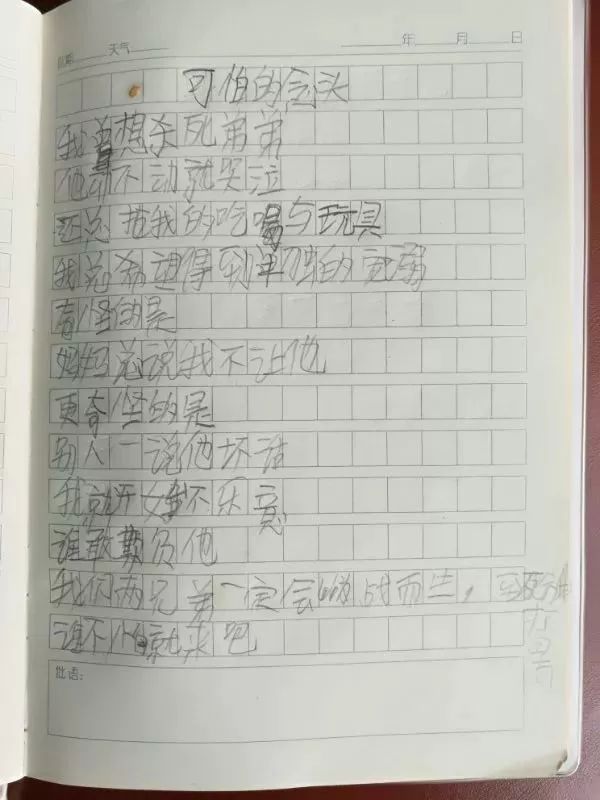 日期 天气 年 月 日
可伯的念头
我曾想杀死弟弟
他动不动就哭泣
还总抢我的吃喝与玩具
我总希望得到单独的宠爱
奇怪的是
妈妈总说我不让他
更奇怪的是
别人一说他坏话
我就开始不乐意
谁敢欺负他
我们两兄弟一定会 战而上,
谁不 就来吧
批语: